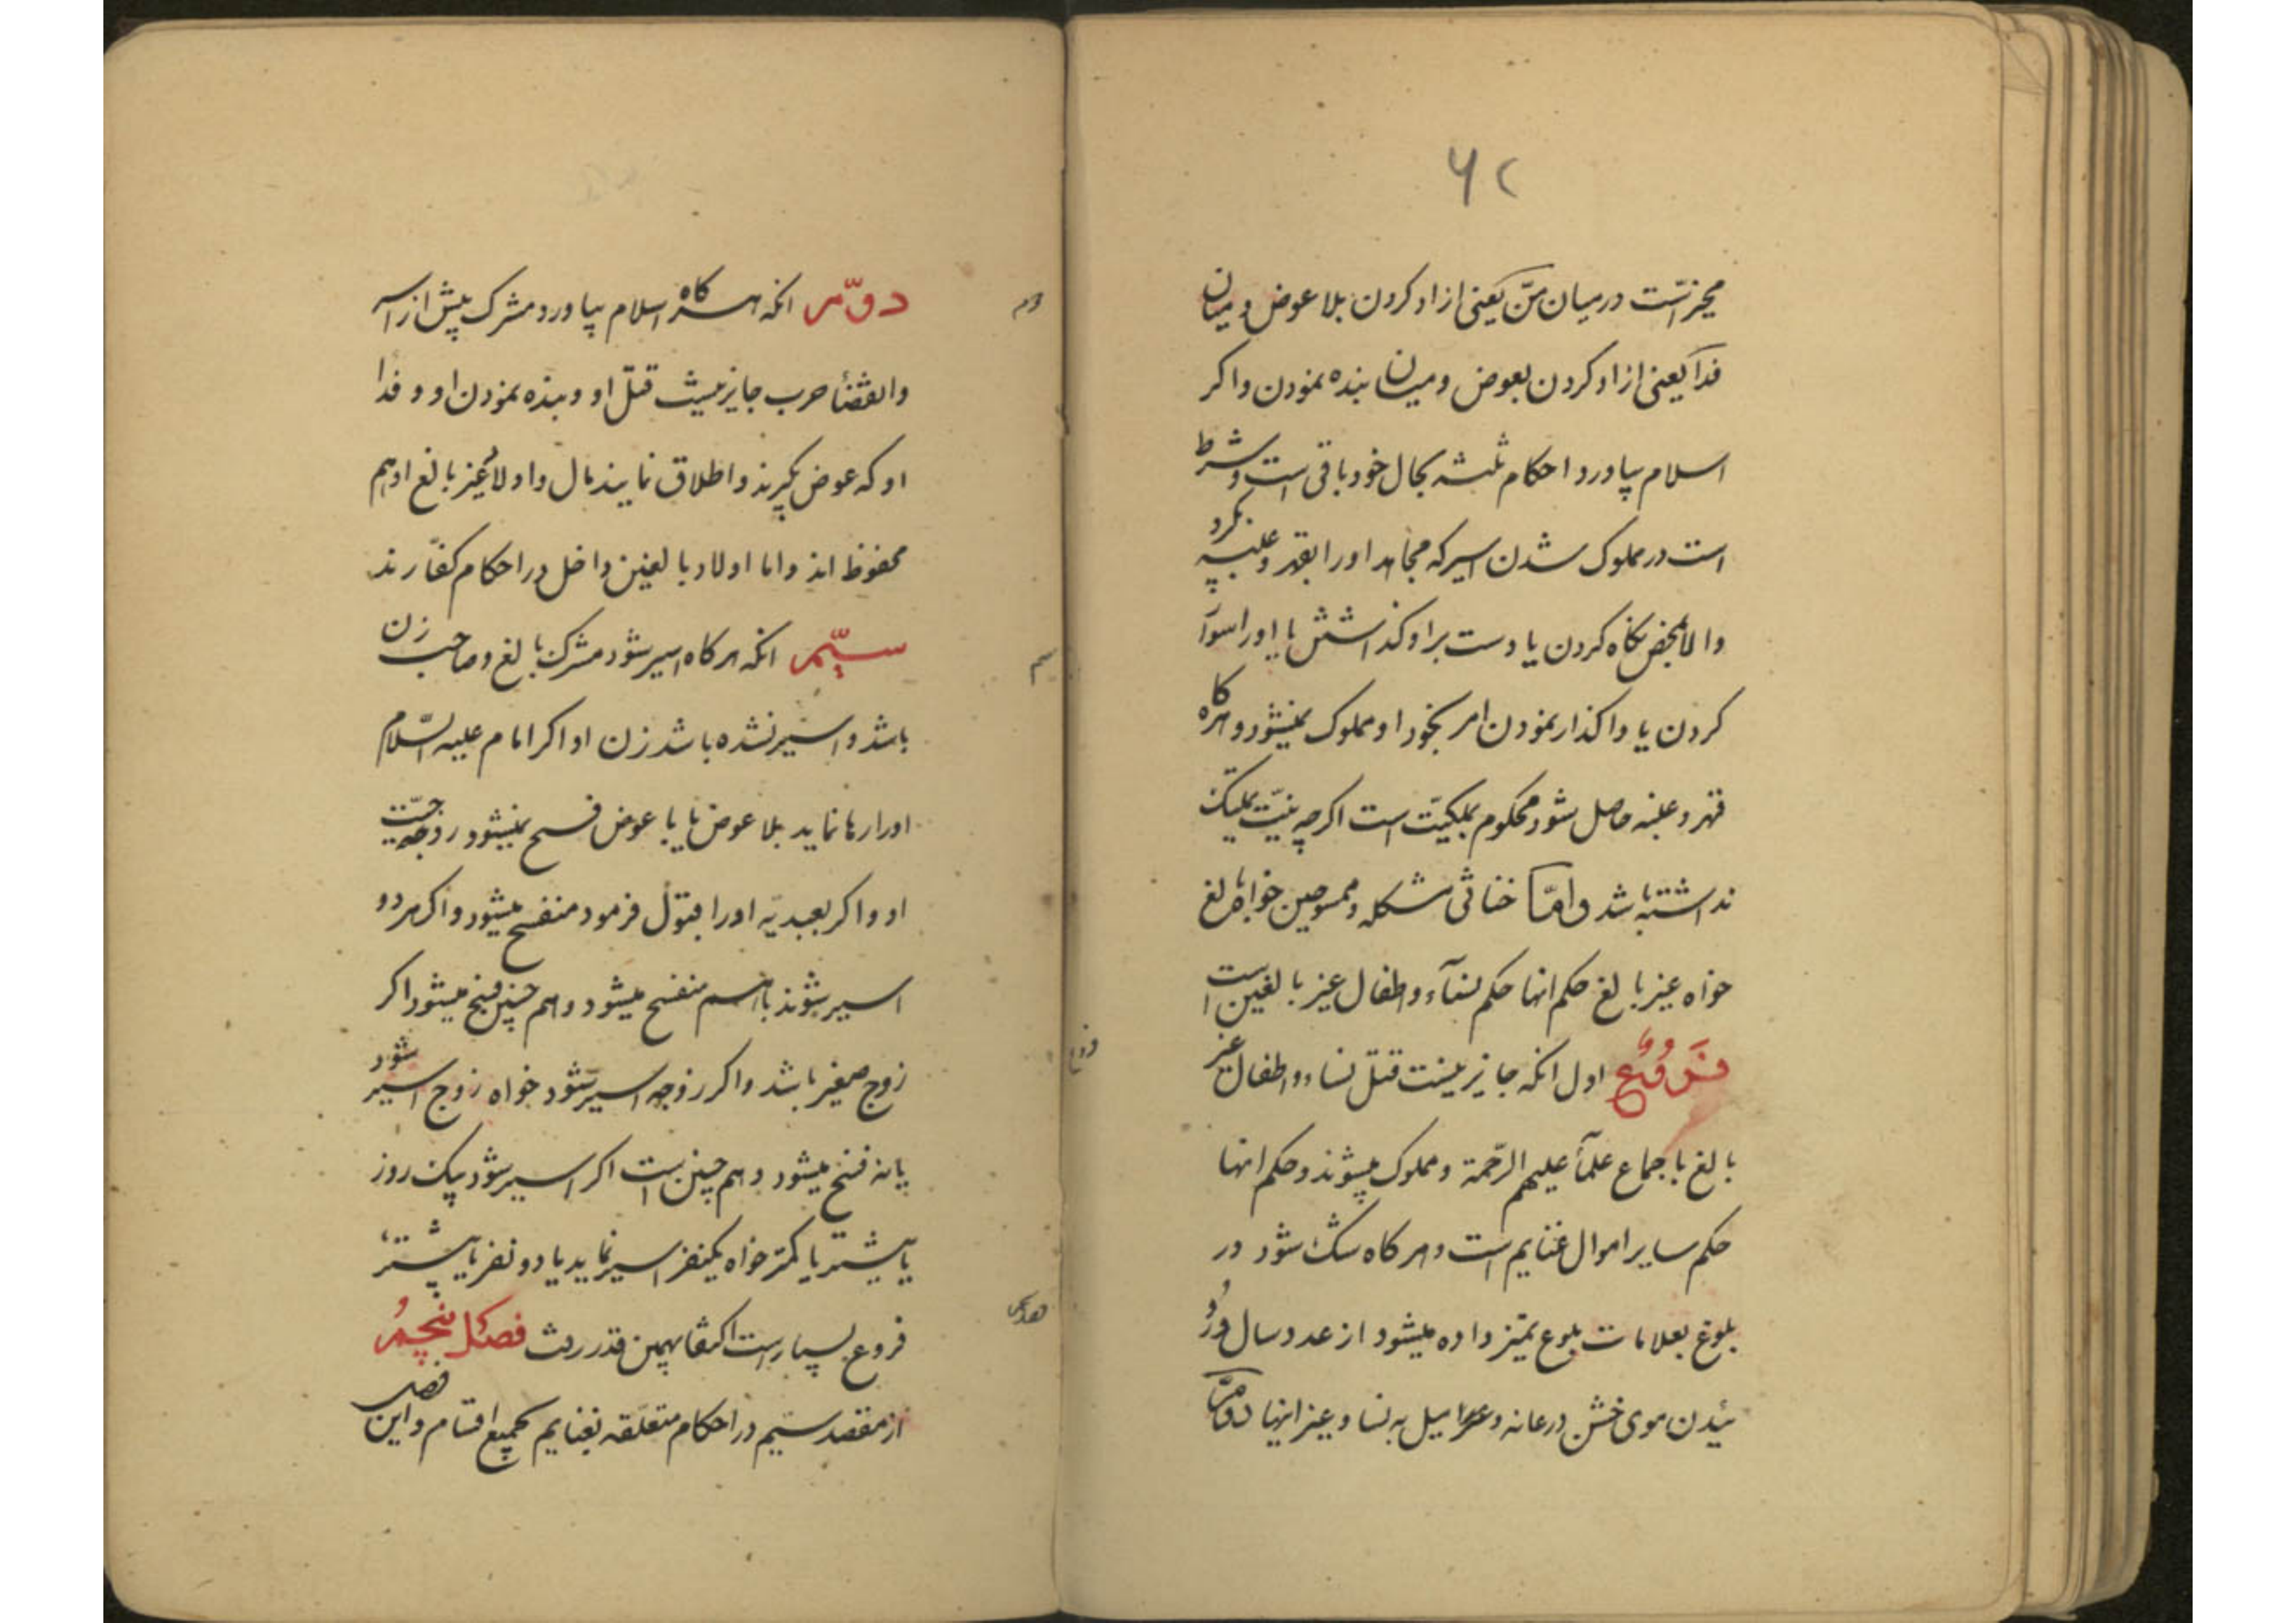 ۶۲
مخیر است در میان منّ یعنی ازاد کردن بلا عوض و میان
فدا یعنی ازاد کردن بعوض و میان بنده نمودن و اکر
اسلام بیاورد احکام ثلثه بحال خود باقی است و شرط
است در مملوک شدن اسیر که مجاهد او را بقهر و غلبه بکیرد
والا بمحض نکاه کردن یا دست بر او کذاشتن یا او را سوار
کردن یا واکذار نمودن امر بخود او مملوک نمیشود و هرکاه
قهر و غلبه حاصل شود محکوم بملکیّت است اکرچه نیّت تملیک
نداشته باشد و امّا خناثی مشکله و ممسوحین خواه بالغ
خواه غیر بالغ حکم انها حکم نساء و اطفال غیر بالغین است
فروع اول انکه جایز نیست قتل نساء و اطفال غیر
بالغ باجماع علمآ علیهم الرّحمة و مملوک میشوند و حکم انها
حکم سایر اموال غنایم است و هرکاه شک شود در
بلوغ بعلامات بلوغ تمیز داده میشود از عدد سال و رو
ئیدن موی خشن در عانه و میل به نسا و غیر اینها
دوّم
دوّم انکه هرکاه اسلام بیاورد مشرک پیش از اسر
وانقضأ حرب جایز نیست قتل او و بنده نمودن او و فدا
او که عوض بکیرند و اطلاق نمایند مال و اولاد غیر بالغ او هم
محفوظ اند و اما اولاد بالغین داخل در احکام کفّارند
سیم
سیّم انکه هرکاه اسیر شود مشرک بالغ و صاحب زن
باشد و اسیر نشده باشد زن او اکر امام علیه السّلام
او را رها نماید بلا عوض یا با عوض فسخ نمیشود زوجیّت
او و اکر بعبدیّه او را قبول فرمود منفسخ میشود و اکر هردو
اسیر شوند با هم منفسخ میشود و هم چنین فسخ میشود اکر
فروع
زوج صغیر باشد و اکر زوجه اسیر شود خواه زوج اسیر شود
یا نه فسخ میشود و هم چنین است اکر اسیر شود بیک روز
یا بیشتر یا کمتر خواه یکنفر اسیر نماید یا دو نفر یا بیشتر
فروع بسیار است اکتفا بهمین قدر رفت فصل پنجم
از مقصد سیّم در احکام متعلّقه بغنایم بجمیع اقسام و این فصل